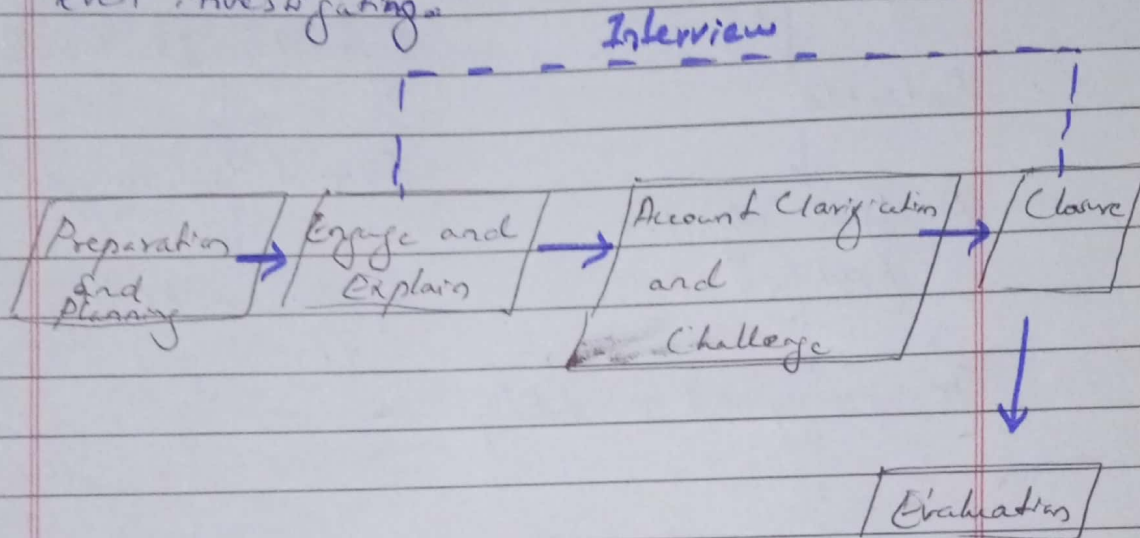 Interview
Preparation
and
Planning
Engage and
Explain
Account Clarification
and
Challenge
Closure
Evaluation